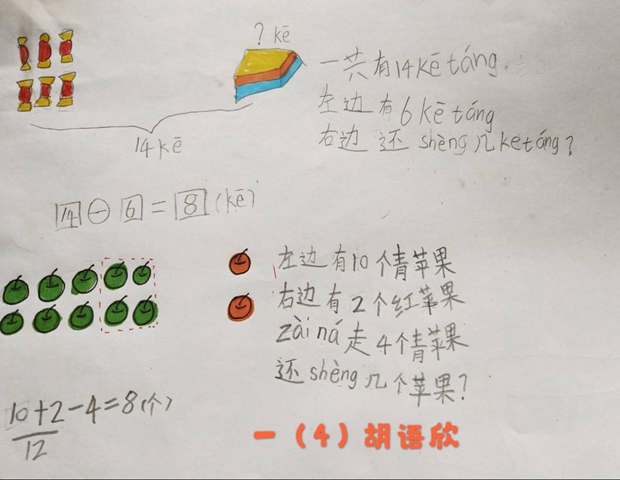 ? kē
一共有14kētáng.
左边有6kētáng
右边还shèng几ketáng?
14kē
14-6=8(kē)
左边有10个青苹果
右边有2个红苹果
zài ná走4个青苹果
还shèng几个苹果?
10+2-4=8(个)
12
一（4）胡语欣